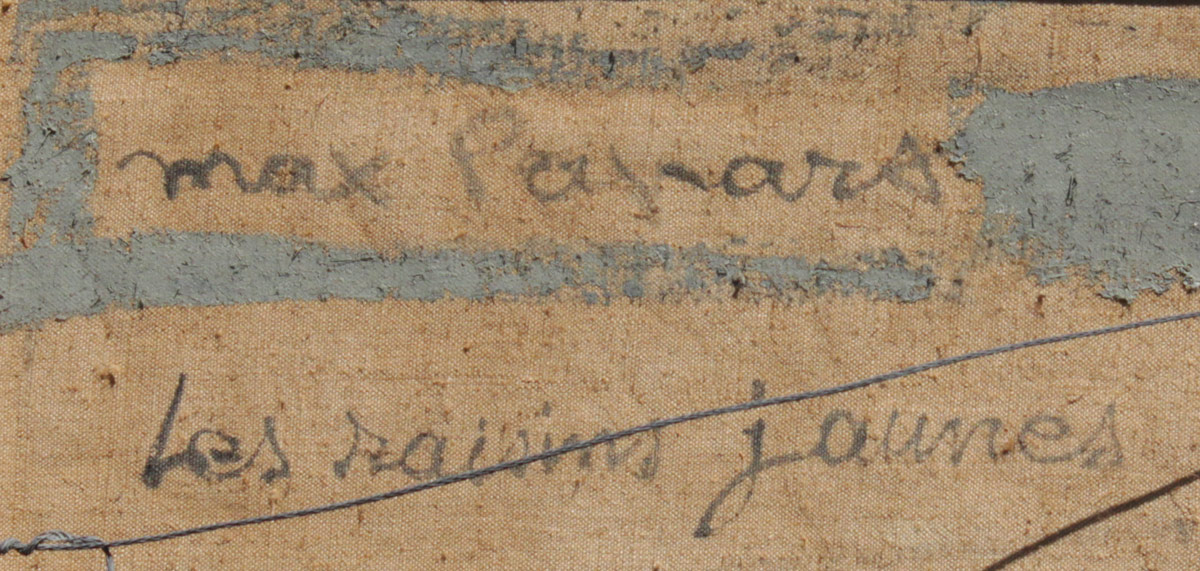 max Papart
Les raisins jaunes